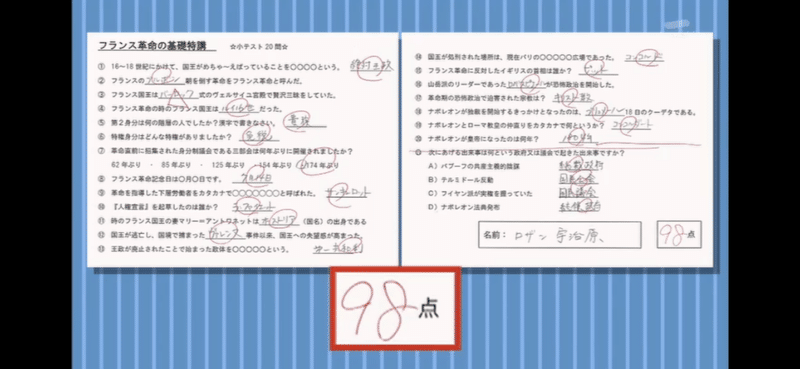 フランス革命の基礎特講 ☆小テスト20問☆
① 16～18世紀にかけて、国王がめちゃーえばっていることを○○○○という。 絶対王政
② フランスのブルボン朝を倒す革命をフランス革命と呼んだ。
③ フランス国王はバロック式のヴェルサイユ宮殿で贅沢三昧をしていた。
④ フランス革命の時のフランス国王はルイ16世だった。
⑤ 第2身分は何の階層の人でしたか？漢字で書きなさい。 貴族
⑥ 特権身分はどんな特権がありましたか？ 免税
⑦ 革命直前に招集された身分制議会である三部会は何年ぶりに開催されましたか？
62年ぶり ・ 85年ぶり ・ 125年ぶり ・ 154年ぶり ・ 174年ぶり
⑧ フランス革命記念日は○月○日です。 7月14日
⑨ 革命を指導した下層労働者をカタカナで○○○○○○○と呼ばれた。 サンキュロット
⑩ 『人権宣言』を起草したのは誰か？ ラ・ファイエット
⑪ 時のフランス国王の妻マリー＝アントワネットはオーストリア（国名）の出身である
⑫ 国王が逃亡し、国境で捕まったヴァレンヌ事件以来、国王への失望感が高まった。
⑬ 王政が廃止されたことで始まった政体を○○○○○という。 第一共和制
⑭ 国王が処刑された場所は、現在パリの○○○○○広場であった。 コンコルド
⑮ フランス革命に反対したイギリスの首相は誰か？ ピット
⑯ 山岳派のリーダーであったロベスピエールが恐怖政治を開始した。
⑰ 革命期の恐怖政治で迫害された宗教は？ キリスト教
⑱ ナポレオンが独裁を開始するきっかけとなったのは、ブリュメール18日のクーデタである。
⑲ ナポレオンとローマ教皇の仲直りをカタカナで何というか？ コンコルダート
⑳ ナポレオンが皇帝になったのは何年？ 1804年
次にあげる出来事は何という政府又は議会で起きた出来事ですか？
A）バブーフの共産主義的陰謀 総裁政府
B）テルミドール反動 国民公会
C）フイヤン派が実権を握っていた 国民議会
D）ナポレオン法典発布
名前： ロザン 宇治原、
98点
98点